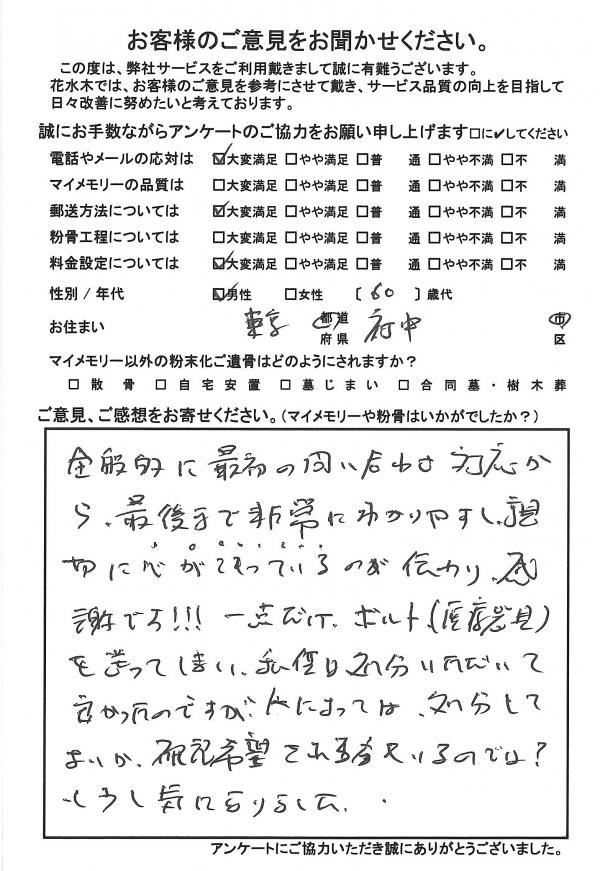 お客様のご意見をお聞かせください。
この度は、弊社サービスをご利用戴きまして誠に有難うございます。
花水木では、お客様のご意見を参考にさせて戴き、サービス品質の向上を目指して
日々改善に努めたいと考えております。
誠にお手数ながらアンケートのご協力をお願い申し上げます□に✓してください
電話やメールの応対は ☑大変満足 □やや満足 □普 通 □やや不満 □不 満
マイメモリーの品質は □大変満足 □やや満足 □普 通 □やや不満 □不 満
郵送方法については ☑大変満足 □やや満足 □普 通 □やや不満 □不 満
粉骨工程については □大変満足 □やや満足 □普 通 □やや不満 □不 満
料金設定については ☑大変満足 □やや満足 □普 通 □やや不満 □不 満
性別 / 年代 ☑男性 □女性 〔 60 〕歳代
お住まい 東京 都道府県 府中 市区
マイメモリー以外の粉末化ご遺骨はどのようにされますか？
□ 散 骨 □ 自 宅 安 置 □ 墓 じ ま い □ 合 同 墓 ・ 樹 木 葬
ご意見、ご感想をお寄せください。（マイメモリーや粉骨はいかがでしたか？）
全般的に最初の問い合わせ対応か
ら、最後まで非常にわかりやすく、親
切に心がこもっているのが伝わり、感
謝です!!! 一点だけ、ボルト(医療器具)
を送ってしまい、私個は処分いただいて
良かったのですが、人によっては、処分して
よいか、確認希望される方もいるのでは?
と少し気になりました。
アンケートにご協力いただき誠にありがとうございました。